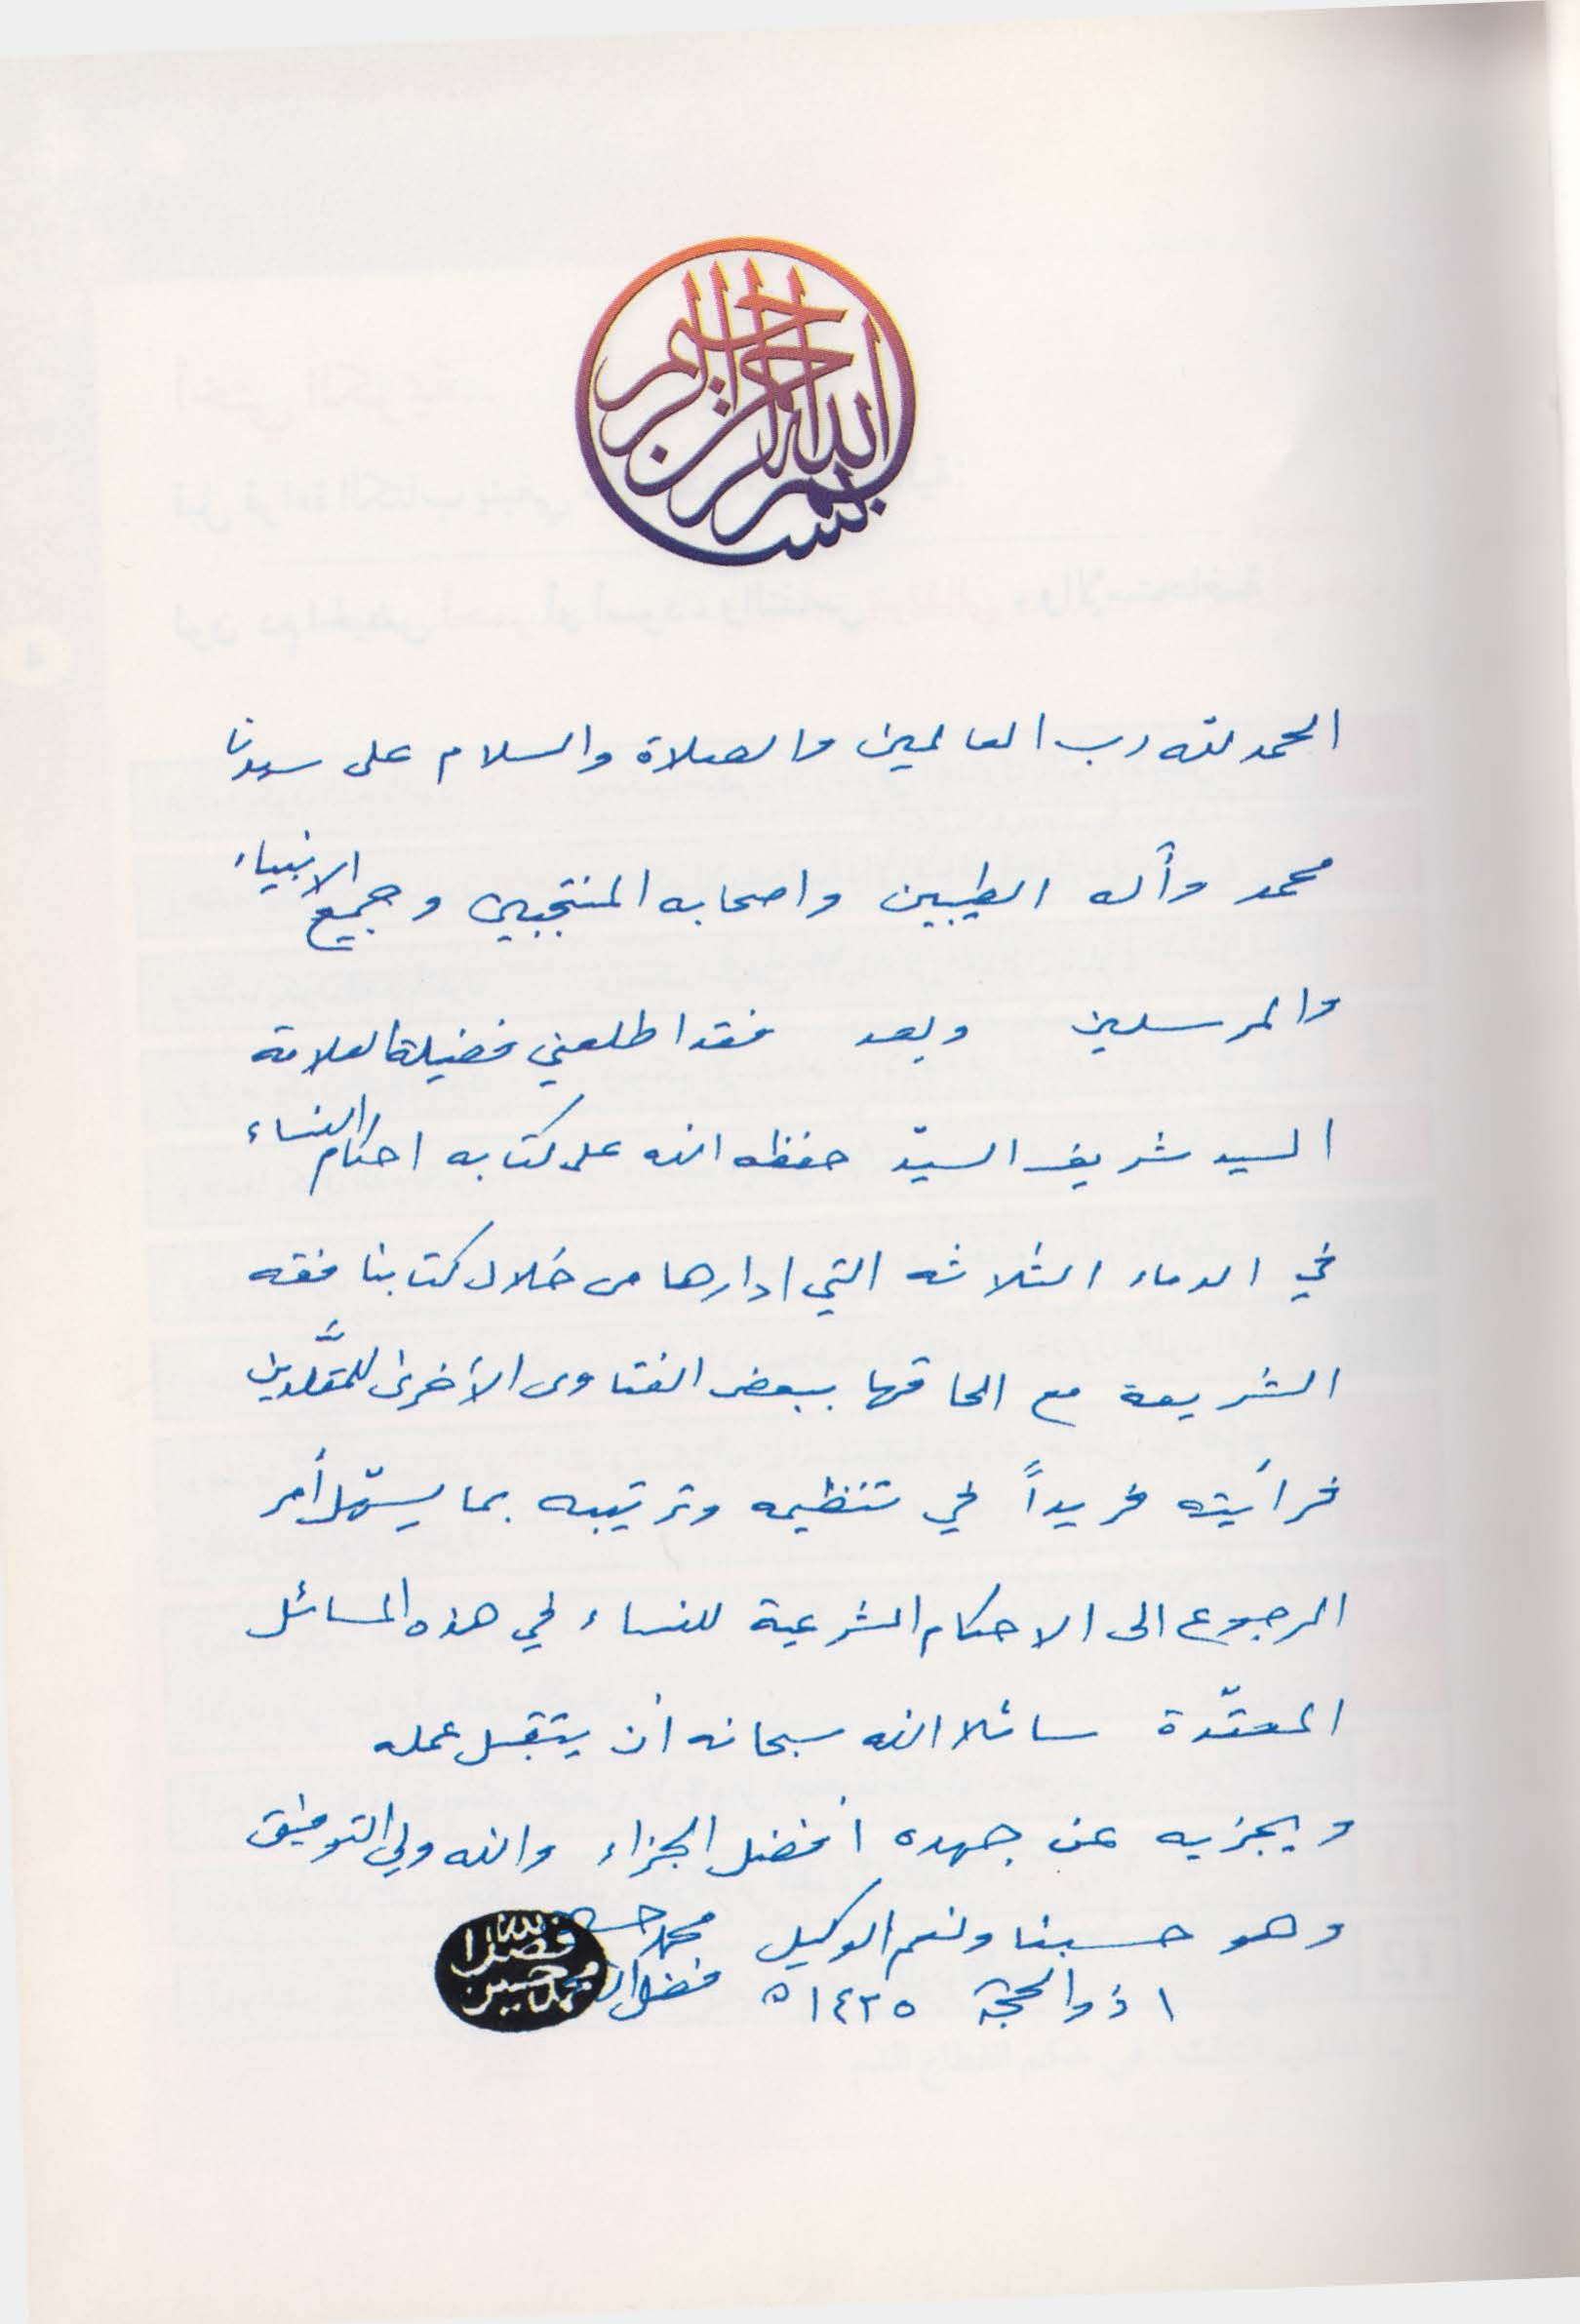 بسم الله الرحمن الرحيم
الحمد لله رب العالمين والصلاة والسلام على سيدنا
محمد وآله الطيبين واصحابه المنتجبين وجميع الانبياء
والمرسلين وبعد فقد اطلعني فضيلة العلامة
السيد شريف السيّد حفظه الله على كتابه احكام النساء
في الدماء الثلاثه التي ادارها من خلال كتابنا فقه
الشريعة مع الحاقها ببعض الفتاوى الأخرى للمقلّدين
فرأيته فريداً في تنظيمه وترتيبه بما يسهّل أمر
الرجوع الى الاحكام الشرعية للنساء في هذه المسائل
المعقّدة سائلا الله سبحانه أن يتقبل عمله
ويجزيه عن جهده أفضل الجزاء والله ولي التوفيق
وهو حسبنا ونعم الوكيل محمد حسين
١ ذو الحجة ١٤٢٥ ه فضل الله
محمد حسين فضل الله